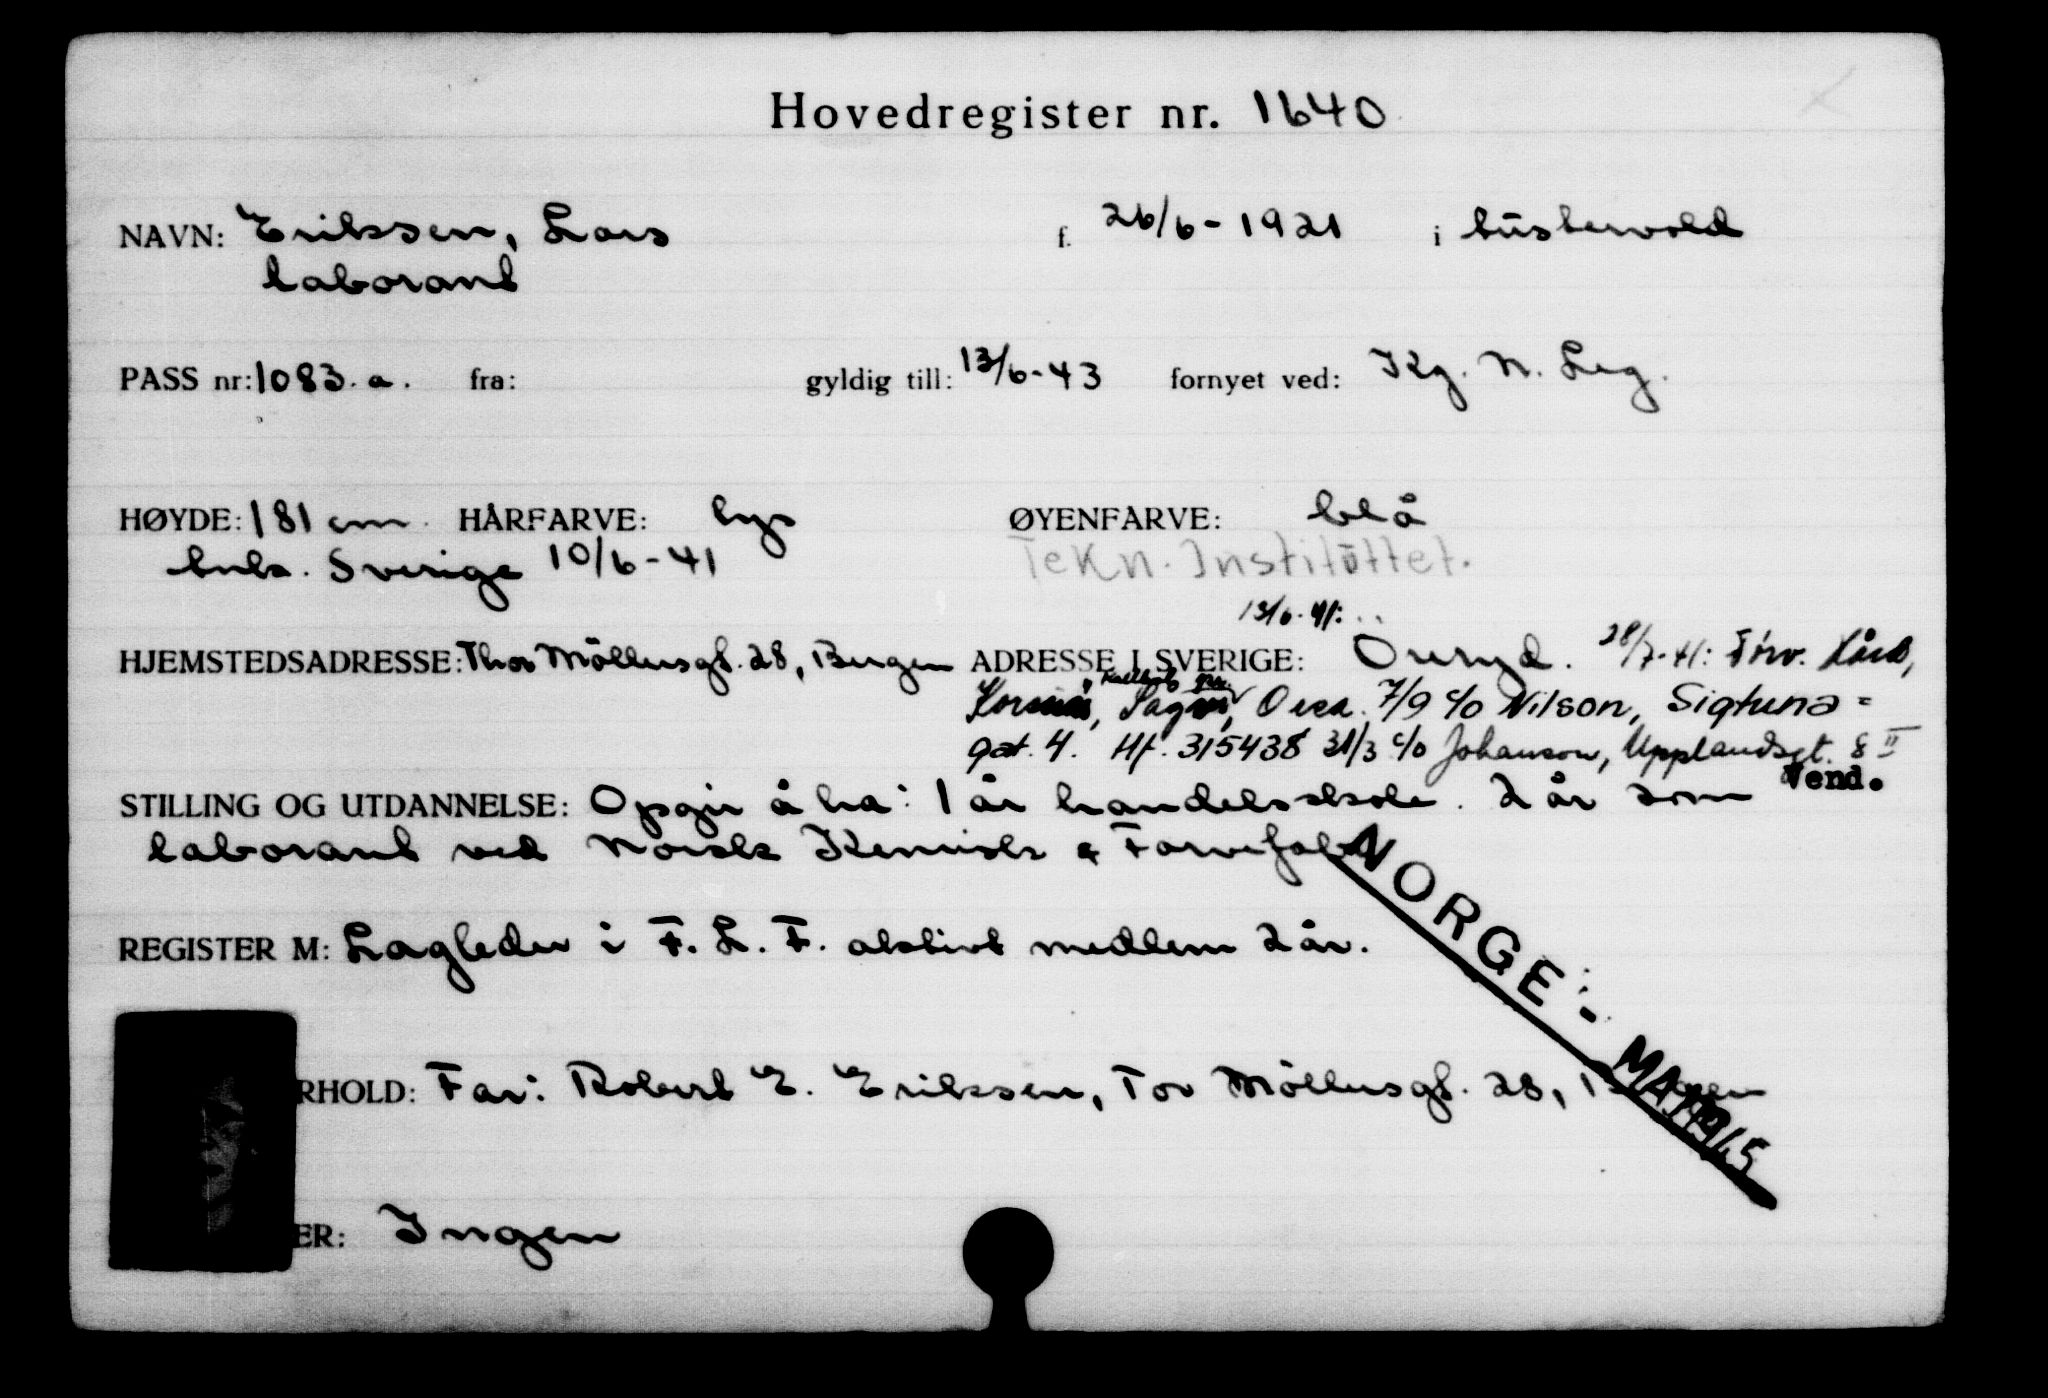 Hovedregister nr. 1640
NAVN: Eriksen, Lars f. 26/6-1921 i Lüsterwold
laborant
PASS nr: 1083.a. fra: gyldig till: 13/6-43 fornyet ved: Kg. N. Leg.
HØYDE: 181 cm. HÅRFARVE: lys ØYENFARVE: blå
Ank. Sverige 10/6-41 Tekn. Institüttet.
13/6-41:
HJEMSTEDSADRESSE: Thor Möllersgt. 28, Bergen ADRESSE I SVERIGE: Öreryd. 28/7-41: Förv.
7/9 c/o Nilson, Sigtuna=
gat. 4. Hf. 315438 31/3 c/o Johanson, Upplandsgt. 8 II
Vend.
STILLING OG UTDANNELSE: Opgir å ha: 1 år handelsskole. 2 år som
laborant ved Norsk Kemisk & Farvefabr.
REGISTER M: Lagleder i F. L. F. aktivt medlem 2 år.
NORGE:- MAI 1945
RHOLD: Far: Robert E. Eriksen, Tor Möllersgt. 28, Bergen
ER: Ingen